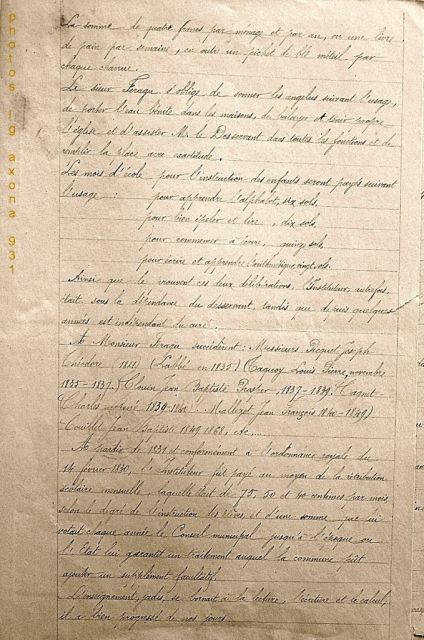 La somme de quatre francs par ménage et par an, ou une livre
de pain par semaine, en outre un pichet de blé méteil par
chaque charrue.
Le sieur Feraqu s'oblige de sonner les angelus suivant l'usage,
de porter l'eau bénite dans les maisons, de balayer et tenir propre
l'église et d'assister Mr le Desservant dans toutes les fonctions et de
remplir la place avec exactitude.
Les mois d'école pour l'instruction des enfants seront payés suivant
l'usage : pour apprendre l'alphabet, six sols,
pour bien épeler et lire, dix sols,
pour commencer à écrire, quinze sols,
pour écrire et apprendre l'arithmétique, vingt sols.
Ainsi que le prouvent ces deux délibérations, l'Instituteur, autrefois,
était sous la dépendance du desservant, tandis que depuis quelques
années il est indépendant du curé.
A Monsieur Feraqu succédèrent : Messieurs Joseph
Théodore, 1811 1835) Louis Pierre, novembre
1835-1837.) Jean Baptiste 1837-1839.
Charles 1839-1840. Jean François 1840-1849)
Jean Baptiste 1849-1868, etc....
A partir de 1831 et conformément à l'ordonnance royale du
14 février 1830, l'Instituteur fut payé au moyen de la rétribution
scolaire mensuelle, laquelle était de 75, 50 et 40 centimes par mois,
selon le degré de l'instruction des élèves, et d'une somme que lui
votait chaque année le Conseil municipal jusqu'à l'époque où
l'Etat lui garantit un traitement auquel la commune put
ajouter un supplément facultatif.
L'enseignement, jadis, se bornait à la lecture, l'écriture et le calcul,
il a bien progressé de nos jours.
photos ig axona 931